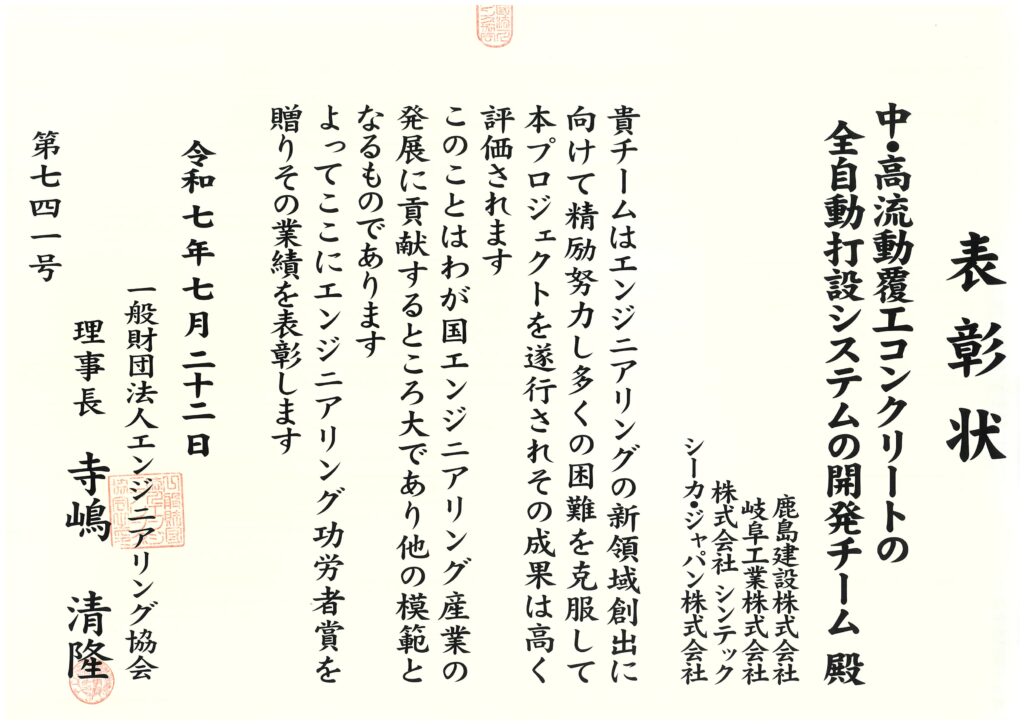 表彰状
中・高流動覆工コンクリートの
全自動打設システムの開発チーム 殿
鹿島建設株式会社
岐阜工業株式会社
株式会社 シンテック
シーカ・ジャパン株式会社
貴チームはエンジニアリングの新領域創出に
向けて精励努力し多くの困難を克服して
本プロジェクトを遂行されその成果は高く
評価されます
このことはわが国エンジニアリング産業の
発展に貢献するところ大であり他の模範と
なるものであります
よってここにエンジニアリング功労者賞を
贈りその業績を表彰します
令和七年七月二十二日
一般財団法人エンジニアリング協会
理事長 寺嶋 清隆
第七四一号